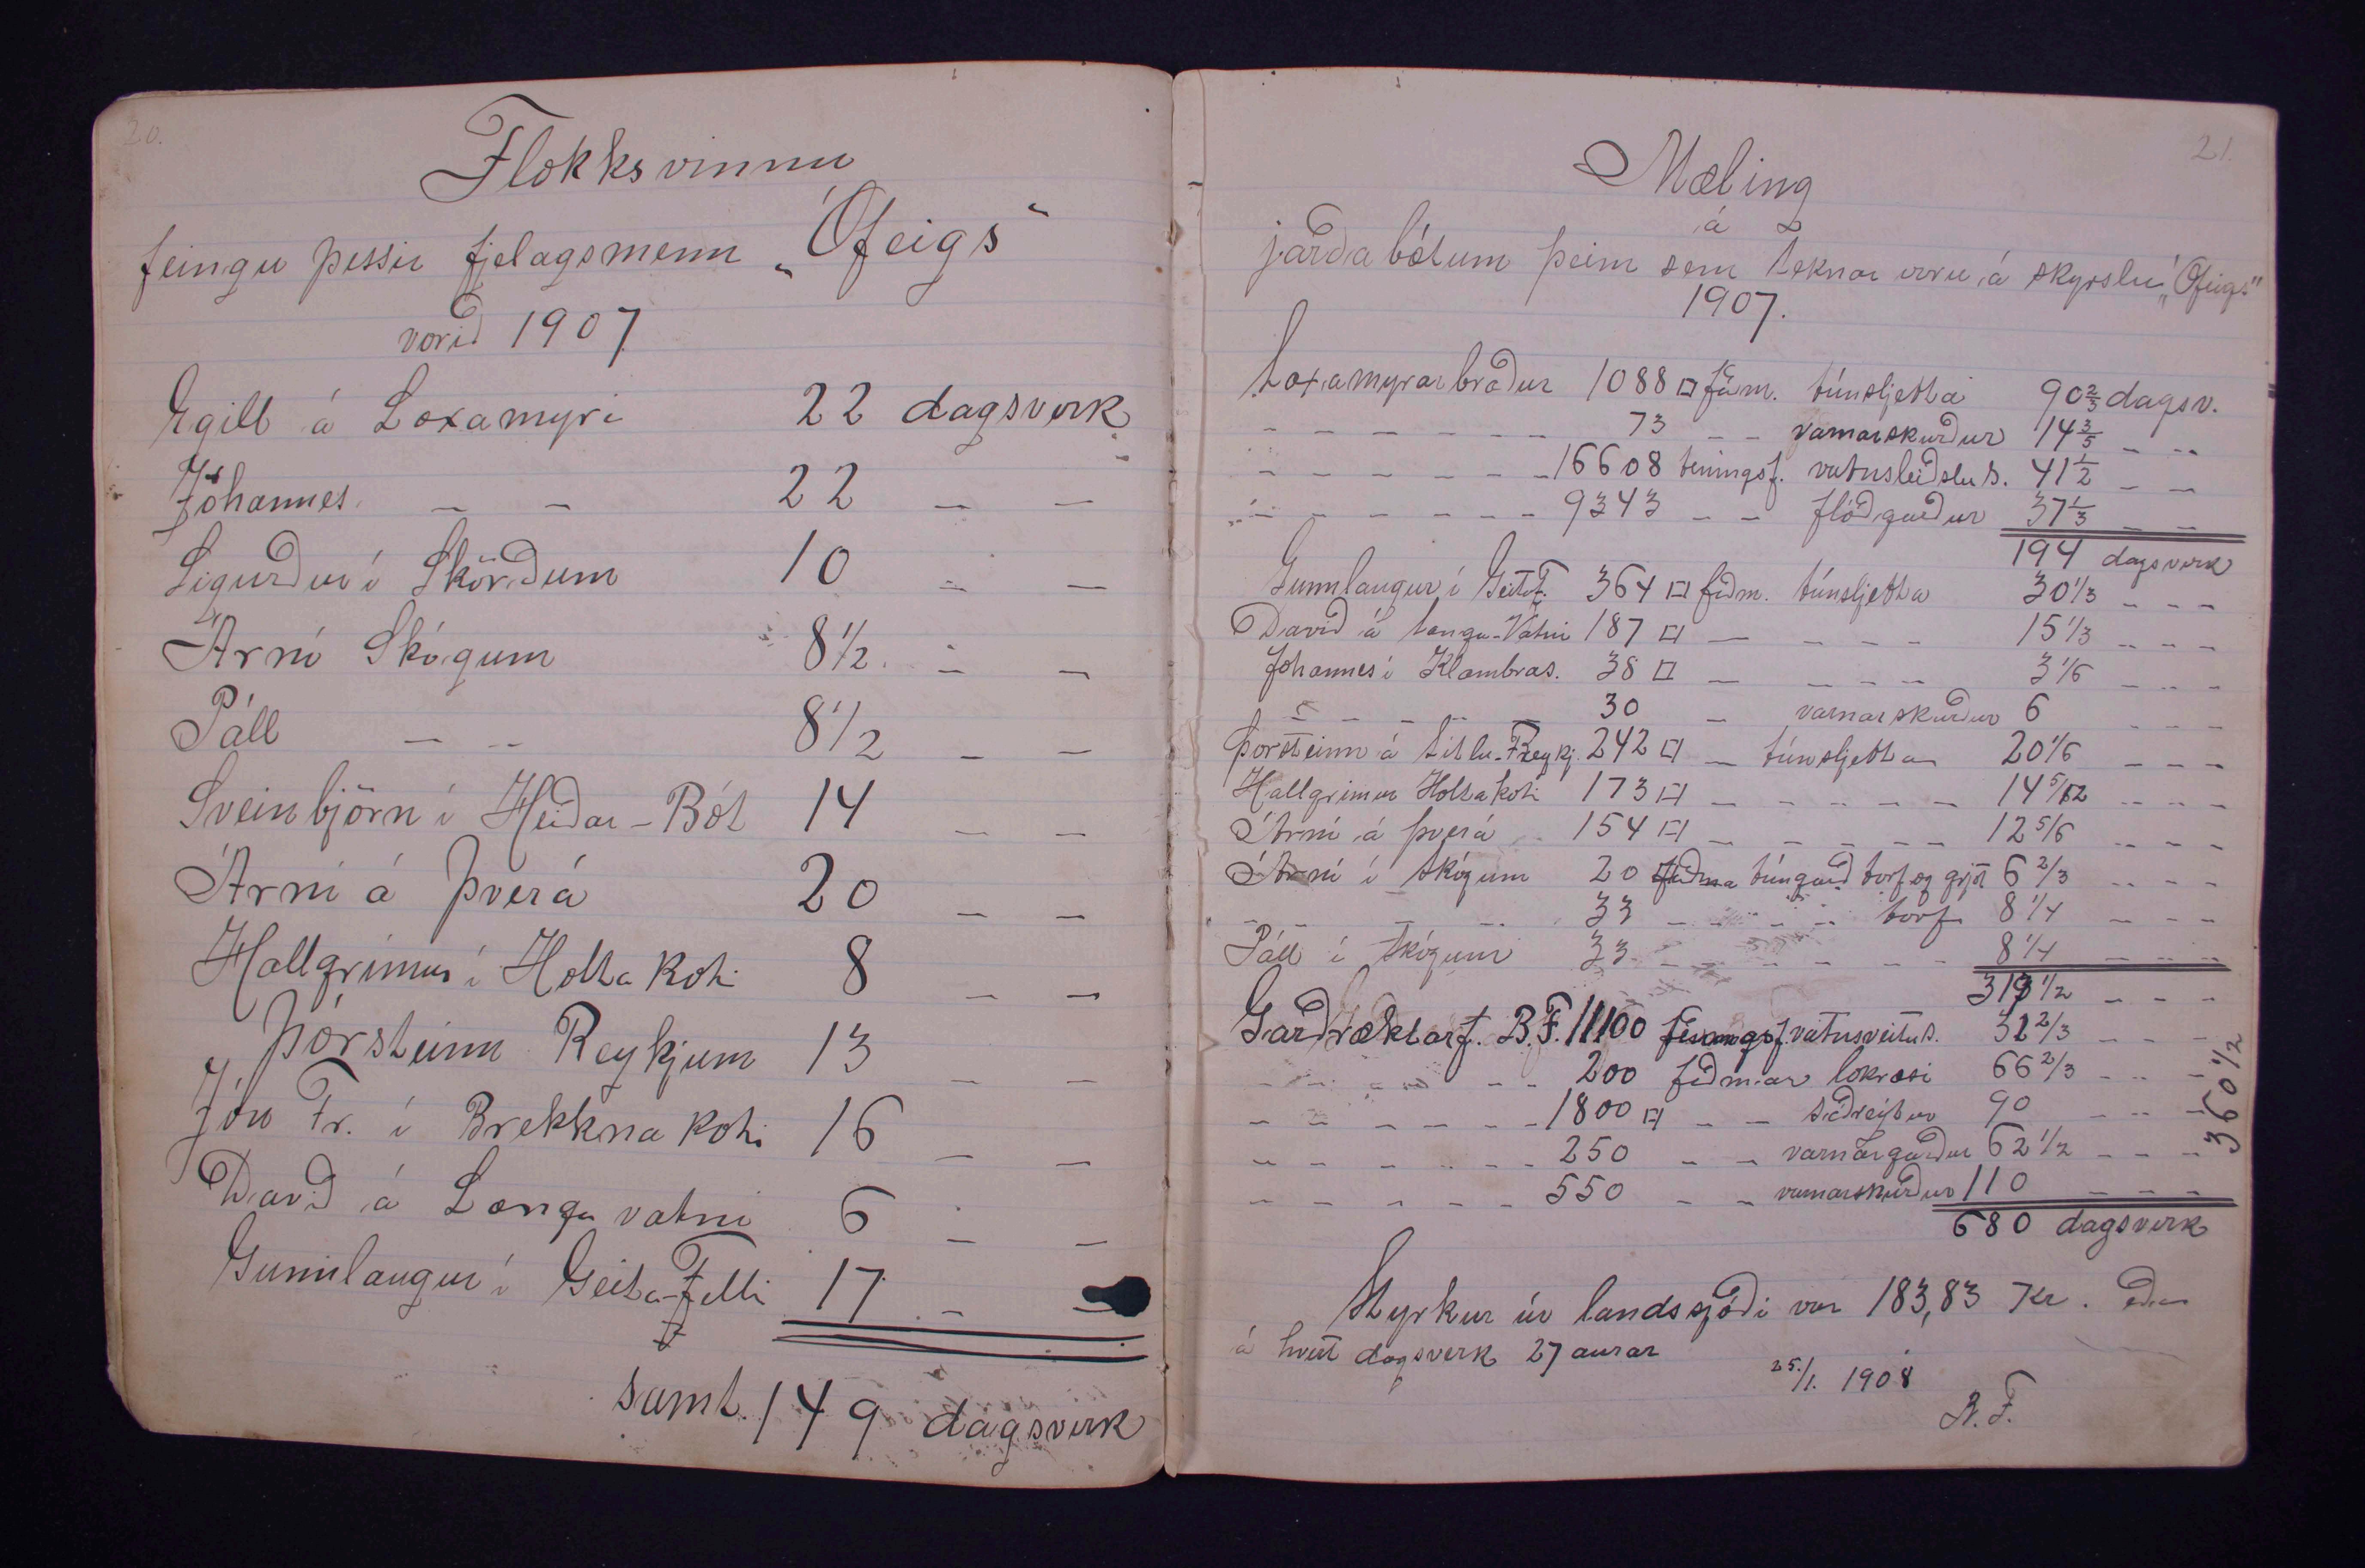 20.
Flokksvinnu
feingu þessir fjelagsmenn „Ófeigs“
vorið 1907
Egill á Laxamyri 22 dagsverk
Jóhannes — — 22 — —
Sigurður í Skörðum 10 — —
Árni Skógum 8 1/2 — —
Páll — — 8 1/2 — —
Sveinbjörn í Heiðar-Bót 14 — —
Árni á Þverá 20 — —
Hallgrímur í Holtakoti 8 — —
Þórsteinn Reykjum 13 — —
Jón Fr. í Brekknakoti 16 — —
Davíð á Langavatni 6 — —
Gunnlaugur í Geita-Felli 17 — —
samt. 149 dagsverk
21.
Mæling
á
jarðabótum þeim sem teknar voru á skyrslu „Ófeigs“
1907.
Laxamyrarbræður 1088 □ fám. túnsljetta 90 2/3 dagsv.
— — — — — — 73 — — varnarskurður 14 3/5 — —
— — — — — — 16608 teningsf. vatnsleiðslu s. 41 1/2 — —
— — — — — — 9343 — — flóðgarður 37 1/3 — —
194 dagsverk
Gunnlaugur í Geitaf. 364 □ fáðm. túnsljetta 30 1/3 — — —
Davíð á Langa-Vatni 187 □ — — — — 15 1/3 — — —
Jóhannes í Klambras. 38 □ — — — — 3 1/6 — — —
— — — — — — 30 — varnarskurður 6 — — —
Þorsteinn á Litlu-Reykj. 242 □ — túnsljetta 20 1/6 — — —
Hallgrimur Holtakoti 173 □ — — — — — — 14 5/12 — — —
Árni á Þverá 154 □ — — — — — 12 5/6 — — —
Árni í Skógum 20 faðma túngarð torf og grjót 6 2/3 — — —
— — — — — 33 — — — — torf 8 1/4 — — —
Páll í Skógum 33 — — — — — — — 8 1/4 — — —
319 1/2 — — —
Garðræktarf. B.F. 11100 teningsf. vatnsveitu s. 32 2/3 — — —
— — — — — — 200 faðmar lokræsi 66 2/3 — — —
— — — — — — 1800 □ — — sáðreitur 90 — — —
— — — — — — 250 — — varnargarður 62 1/2 — — —
— — — — — — 550 — — varnarskurður 110 — — —
360 1/2
680 dagsverk
Styrkur úr landssjóði var 183,83 Kr. eða
á hvert dagsverk 27 aurar
25./1. 1908
B. F.